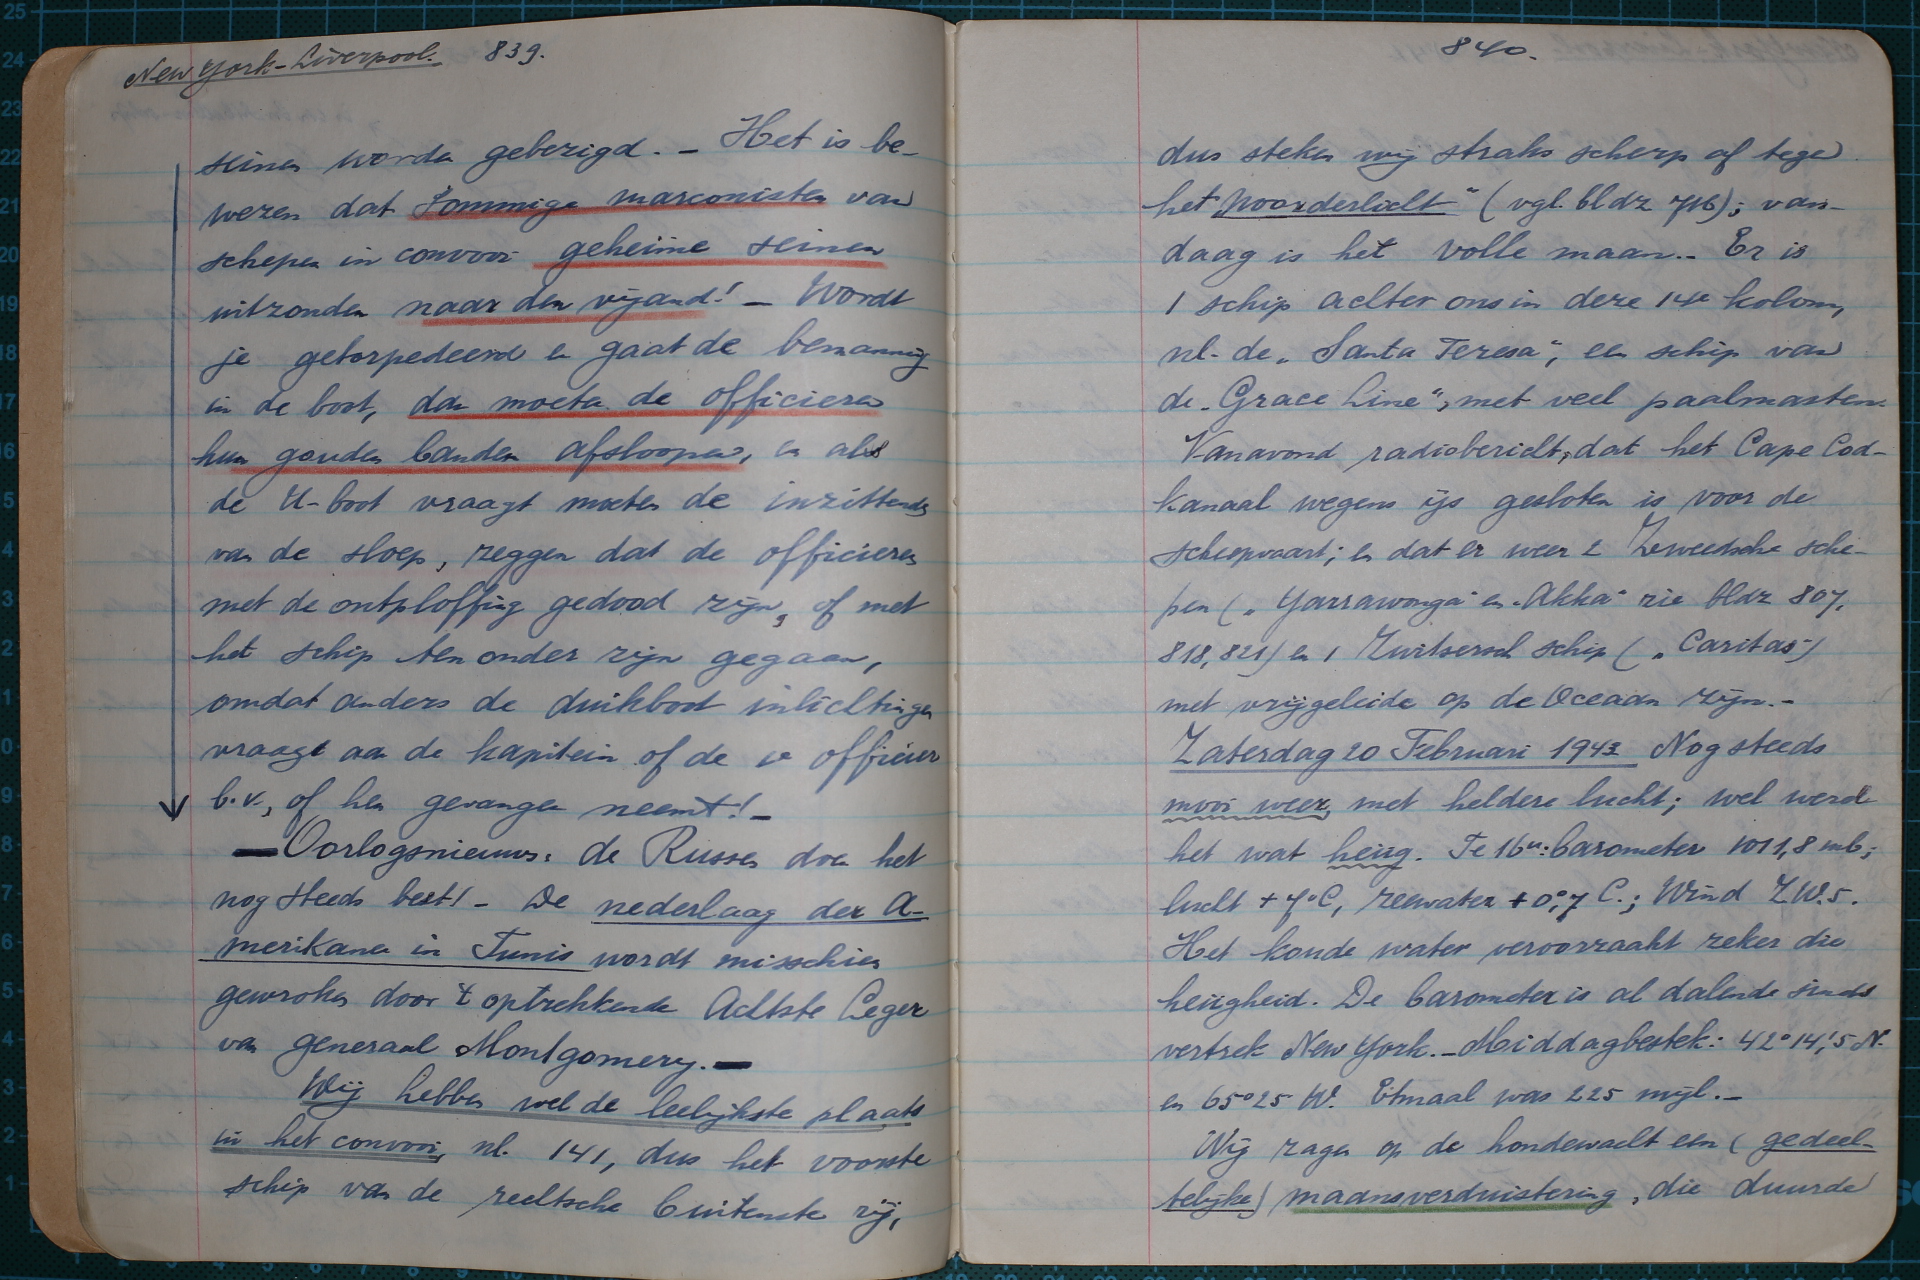 New York-Liverpool. 839.
seinen worden gebezigd. - Het is be-
wezen dat sommige marconisten van
schepen in convooi geheime seinen
uitzonden naar den vijand! - Wordt
je getorpedeerd en gaat de bemanning
in de boot, dan moeten de officieren
hun gouden banden afsloopen, en als
de U-boot vraagt moeten de inzittenden
van de sloep, zeggen dat de officieren
met de ontploffing gedood zijn, of met
het schip ten onder zijn gegaan,
omdat anders de duikboot inlichtingen
vraagt aan de kapitein of de 1e officier
b.v., of hen gevangen neemt! -
- Oorlogsnieuws: de Russen doen het
nog steeds best! - De nederlaag der A-
merikanen in Tunis wordt misschien
gewroken door 't optrekkende Achtste Leger
van generaal Montgomery. -
Wij hebben wel de leelijkste plaats
in het convooi, nl. 141, dus het voorste
schip van de rechtsche buitenste rij,
840.
dus steken wij straks scherp af tegen
het "Noorderlicht" (vgl. bldz 716); van-
daag is het volle maan.- Er is
1 schip achter ons in deze 14e kolom,
nl. de „Santa Teresa", een schip van
de „Grace Line", met veel paalmasten.
Vanavond radiobericht, dat het Cape Cod-
kanaal wegens ijs gesloten is voor de
scheepvaart; en dat er weer 2 Zweedsche sche-
pen („Yarrawonga" en „Akka" zie bldz 807,
818, 821) en 1 Zwitsersch schip („Caritas")
met vrijgeleide op de Oceaan zijn.-
Zaterdag 20 Februari 1943 Nog steeds
mooi weer, met heldere lucht; wel werd
het wat heiig. Te 16u: barometer 1011,8 mb;
lucht +4°C, zeewater +0°,7 C.; Wind Z.W. 5.
Het koude water veroorzaakt zeker die
heiigheid. De barometer is al dalende sinds
vertrek New York. - Middagbestek: 42°14',5 N.
en 65°25 W. Etmaal was 225 mijl.-
Wij zagen op de hondewacht een (gedeel-
telijke) maansverduistering, die duurde